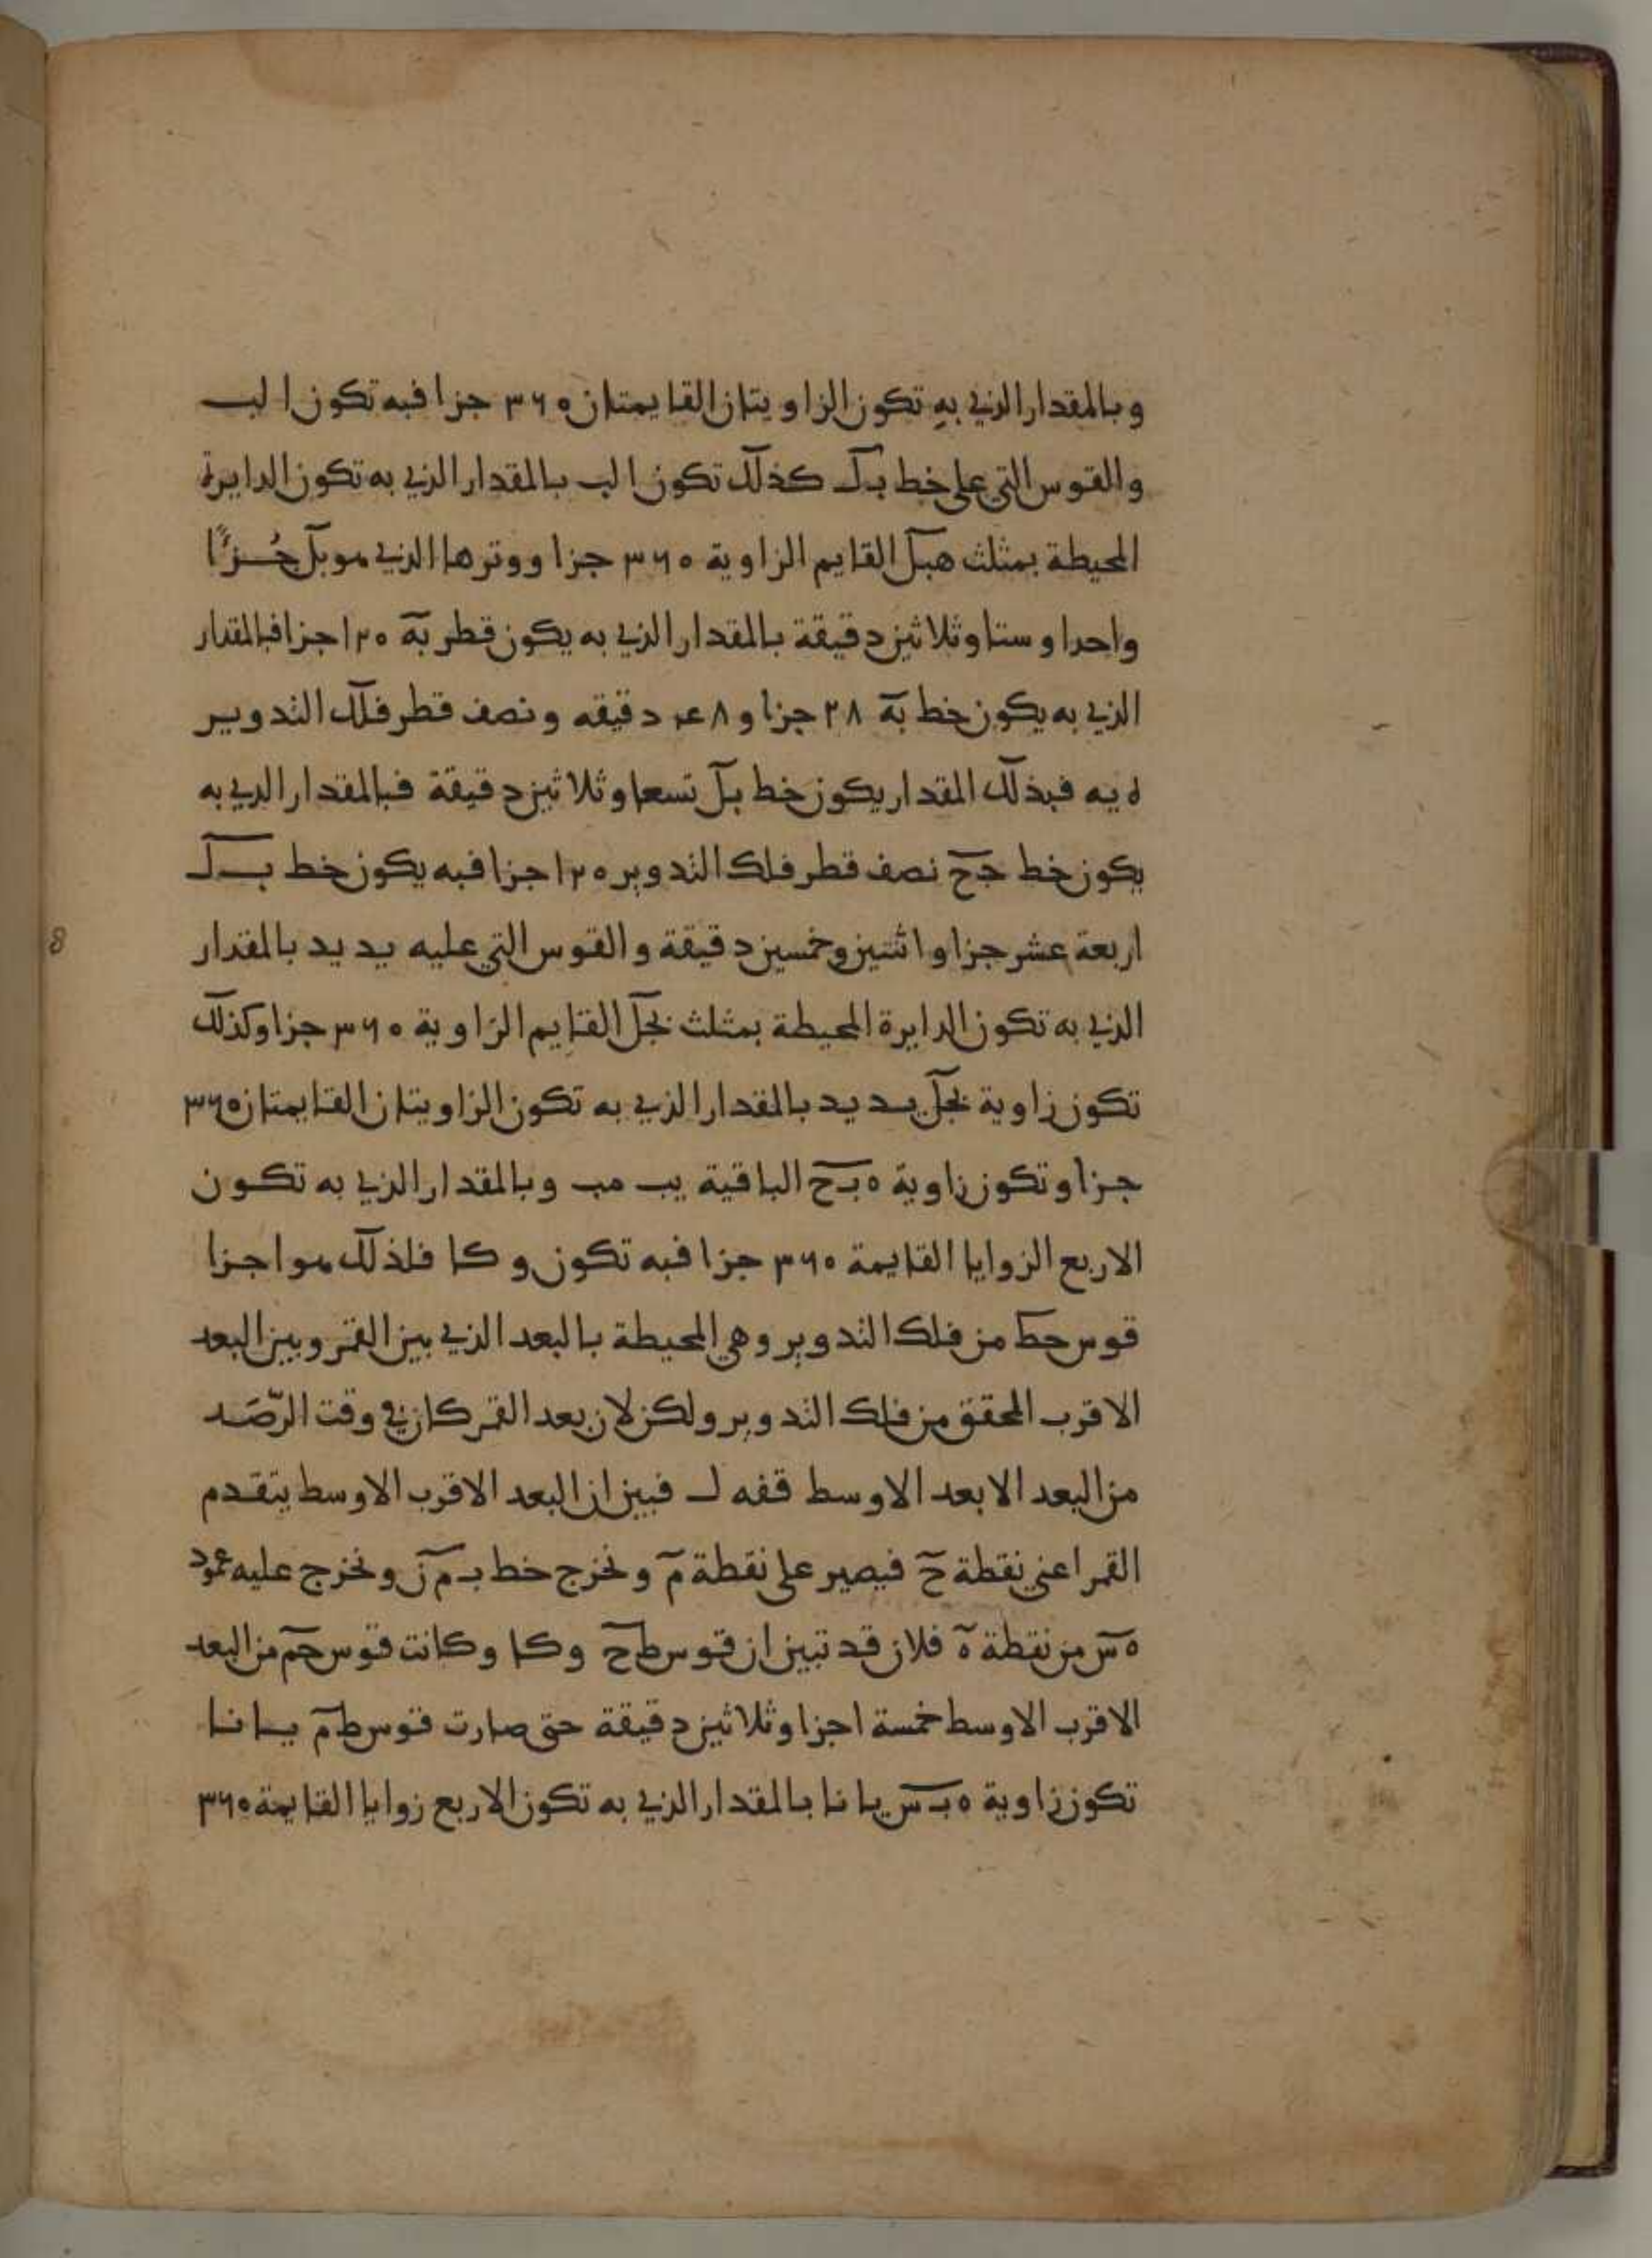 وبالمقدار الذي به تكون الزاويتان القايمتان ٣٦٠ جزا فبه تكون ا لب
والقوس التي على خط بل كذلك تكون ا لب بالمقدار الذي به تكون الدايرة
المحيطة بمثلث هبل القايم الزاوية ٣٦٠ جزا ووترها الذي هو بل جُزءًا
واحدا وستا وثلاثين دقيقة بالمقدار الذي به يكون قطر به ١٢٠ جزا فبالمقدار
الذي به يكون خط به ٣٨ جزا و ٤٨ دقيقه ونصف قطر فلك التدوير
ه يه فبذلك المقدار يكون خط بل تسعا وثلاثين دقيقة فبالمقدار الذي به
يكون خط جح نصف قطر فلك التدوير ١٢٠ جزا فبه يكون خط بل
اربعة عشر جزا واثنتين وخمسين دقيقة والقوس التي عليه يد يد بالمقدار
الذي به تكون الدايرة المحيطة بمثلث بحل القايم الزاوية ٣٦٠ جزا وكذلك
تكون زاوية بحل يد يد بالمقدار الذي به تكون الزاويتان القايمتان ٣٦٠
جزا وتكون زاوية ه بح الباقية يب مب وبالمقدار الذي به تكون
الاربع الزوايا القايمة ٣٦٠ جزا فبه تكون و كا فلذلك هو اجزا
قوس حط من فلك التدوير وهي المحيطة بالبعد الذي بين القمر وبين البعد
الاقرب المحقق من فلك التدوير ولكن لان بعد القمر كان في وقت الرّصَد
من البعد الابعد الاوسط قفه ل فبين ان البعد الاقرب الاوسط يتقدم
القمر اعني نقطة ح فيصير على نقطة م ونخرج خط ب م ن ونخرج عليه عمود
ه س من نقطة ه فلان قد تبين ان قوس طح و كا وكانت قوس حم من البعد
الاقرب الاوسط خمسة اجزا وثلاثين دقيقة حتى صارت قوس طم يا نا
تكون زاوية ه ب س يا نا بالمقدار الذي به تكون الاربع زوايا القايمة ٣٦٠
8